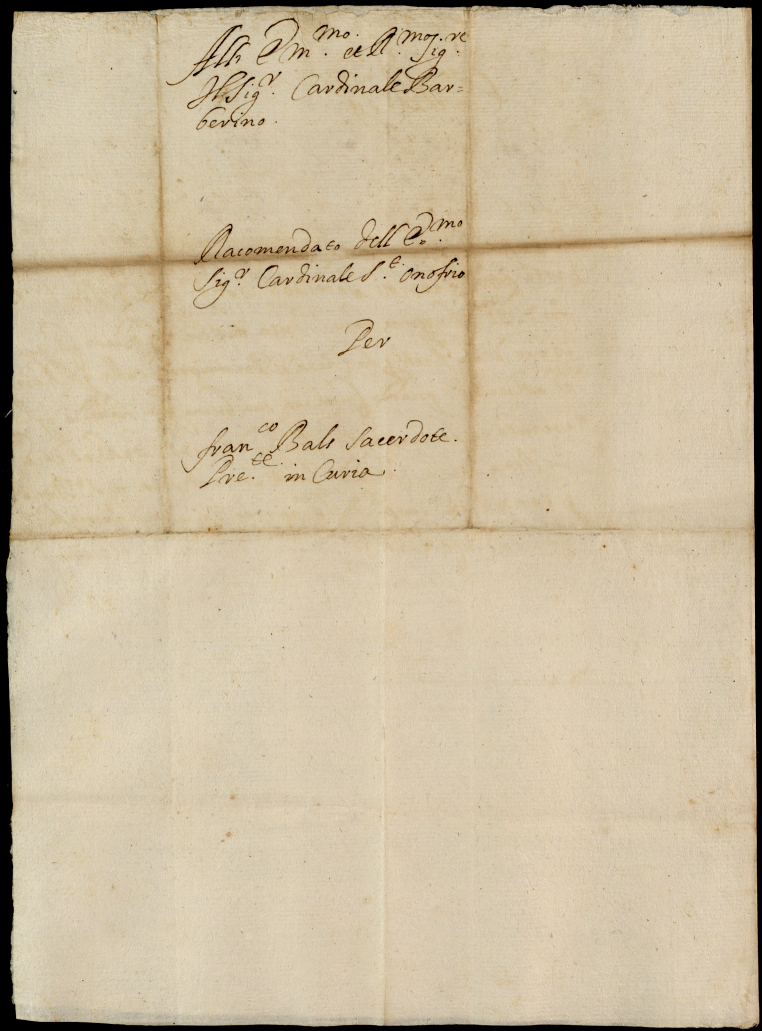 All Em.mo et R.mo Sig.re
Il Sig.r Cardinale Bar=
berino.
Racomendato dell E.mo
Sig.r Cardinale S.t Onofrio
Per
fran.co Bals Sacerdote.
Pre.te in Curia.